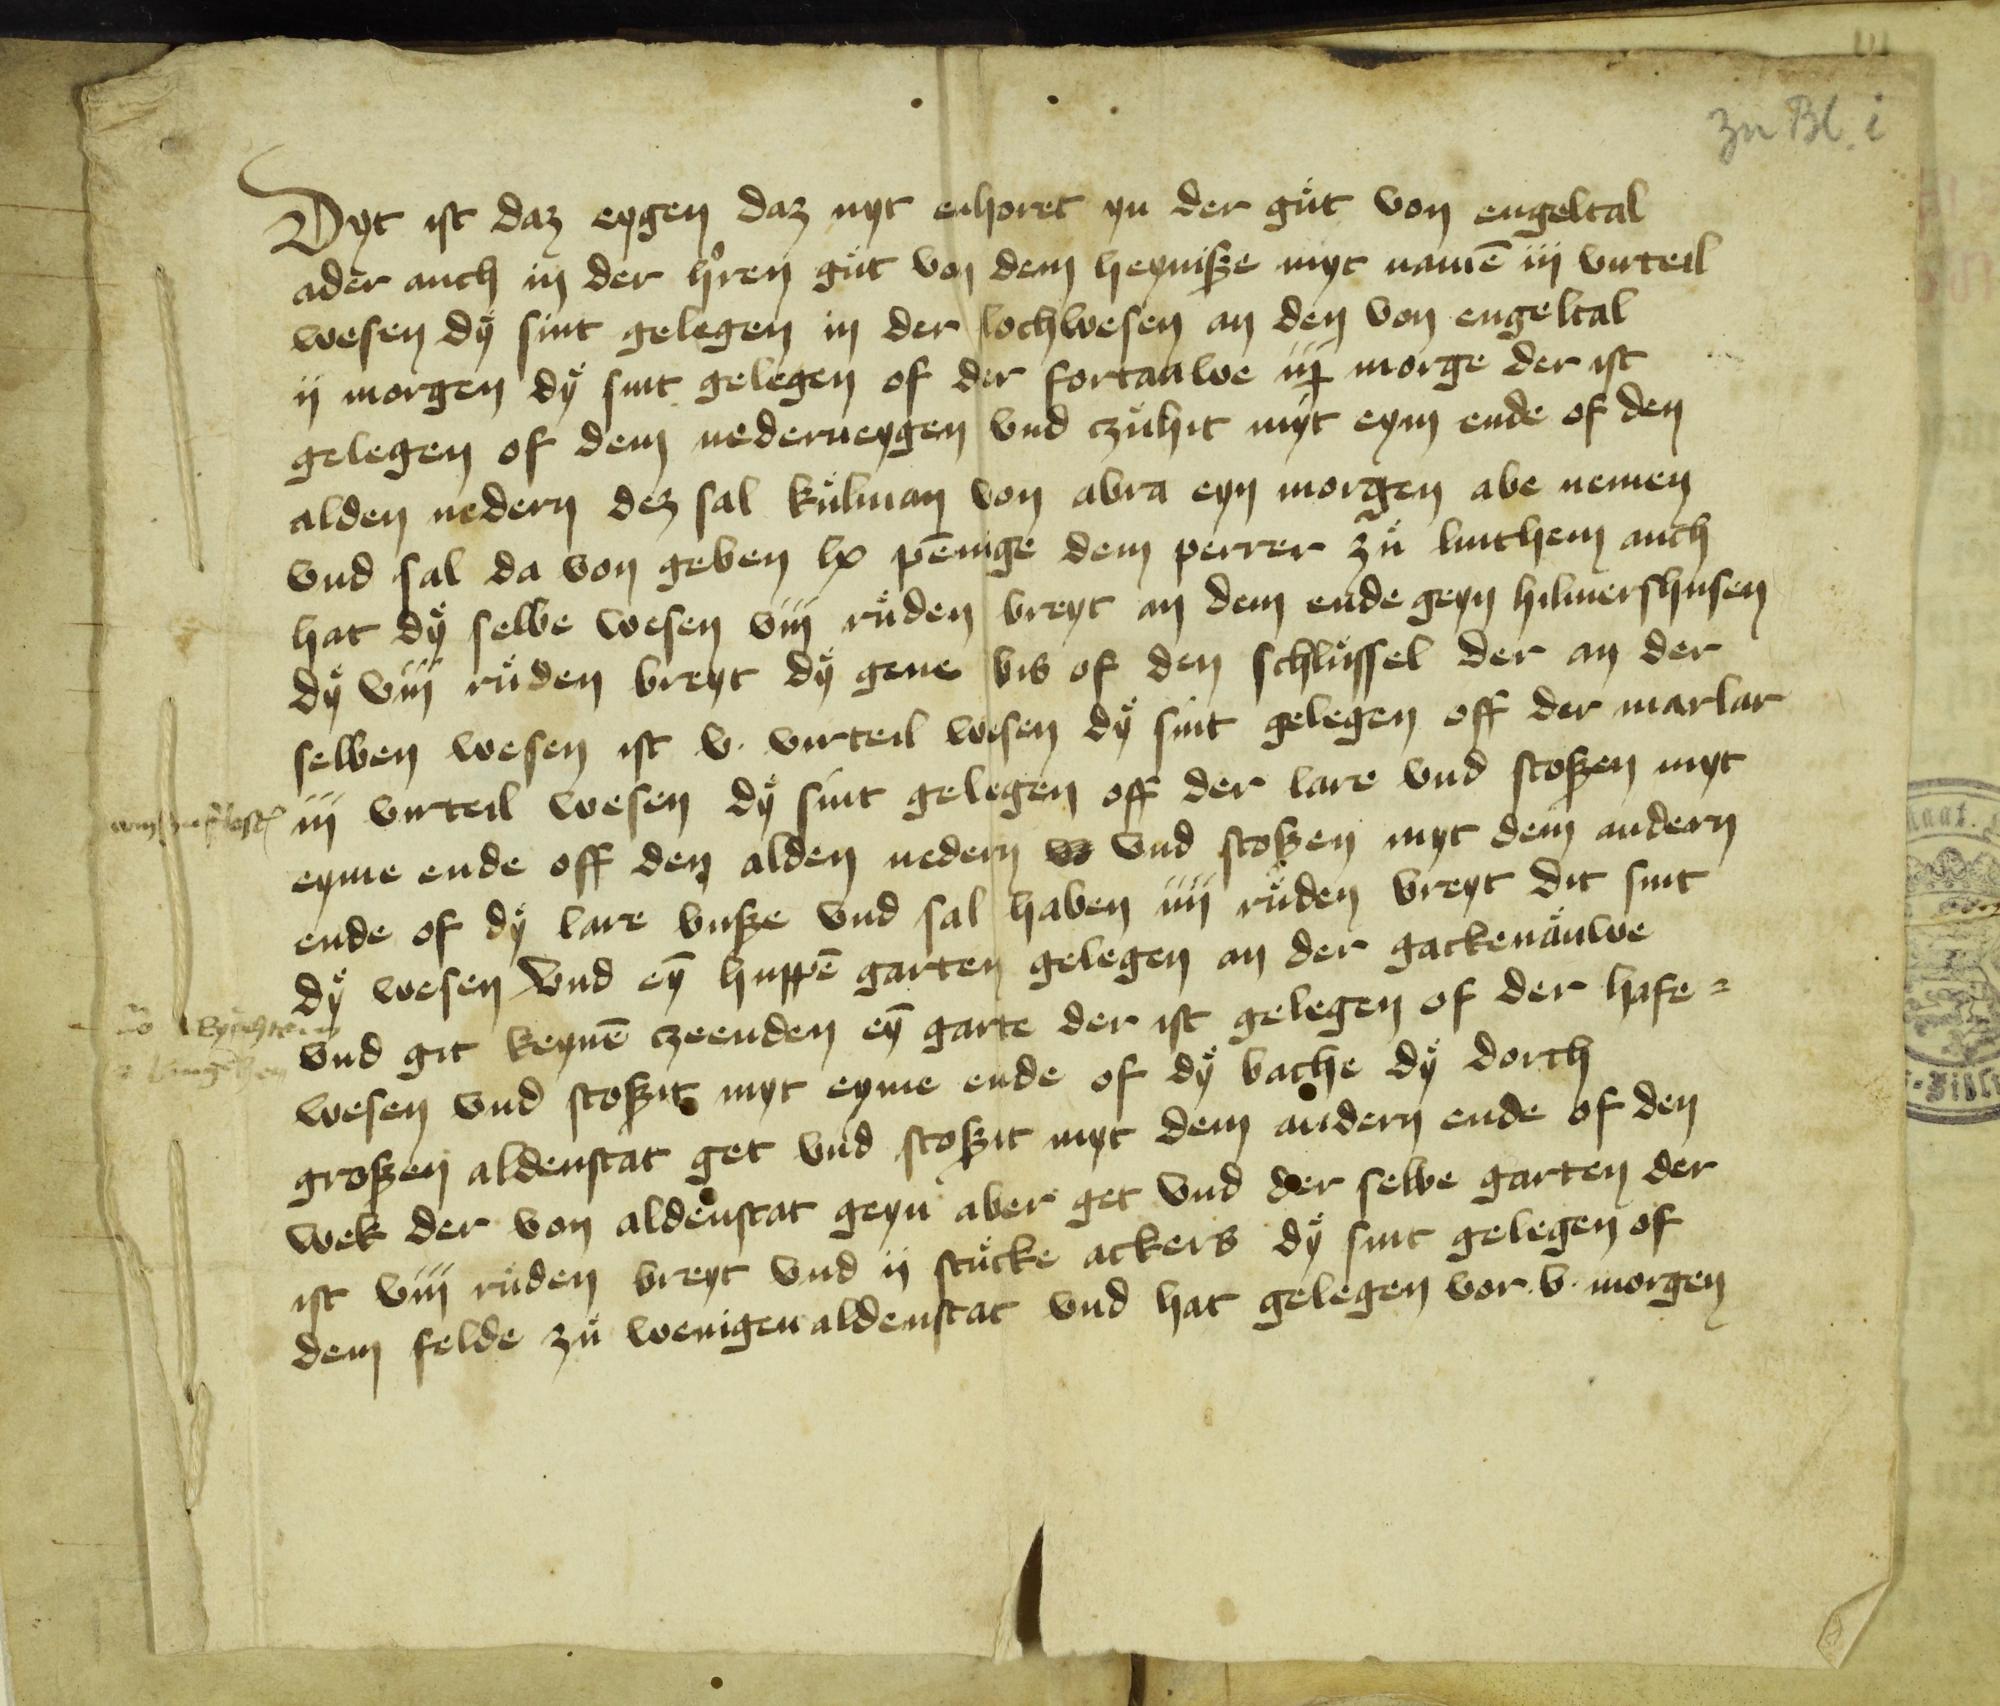 zu Bl. i
Dyt ist daz eygen daz nyt enhoret yn der gůt von engeltal
ader auch in der h̊ren gůt von dem heynisze myt namē iij virteil
wesen dÿ sint gelegen in der lochwesen an den von engeltal
ij morgen dÿ sint gelegen of der fortauwe morge der ist
gelegen of dem nederneygen vnd czůhit myt eym ende of den
alden nedern dez sal kůlman von abra eyn morgen abe nemen
vnd sal da von geben lx pēnige dem perrer zů linthem auch
hat dÿ selbe wesen viij růden breyt an dem ende geyn hilmershusen
dÿ viij růden breyt dÿ gene bis of den schlůssel der an der
selben wesen ist v. virteil wesen dÿ sint gelegen off der marlar
iij virteil wesen dÿ sint gelegen off der lare vnd stoszen myt
eyme ende off den alden nedern vnd stoszen myt dem andern
ende of dÿ lare busze vnd sal haben iiij růden breyt dit sint
dÿ wesen Vnd eȳ huppē garten gelegen an der gackenauwe
vnd git keynē czeenden eȳ garte der ist gelegen of der hase=
wesen vnd stoszit myt eyme ende of dÿ bache dÿ dorch
groszen aldenstat get vnd stoszit myt dem andern ende of den
wek der von aldenstat geyn aber get vnd der selbe garten der
ist viij růden breyt vnd ij stůcke ackers dÿ sint gelegen of
dem felde zů wenigen aldenstat vnd hat gelegen vor .v. morgen